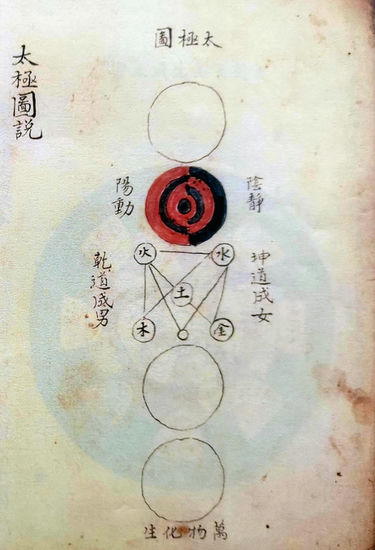 太極圖說
太極圖
陰靜
陽動
火
水
土
木
金
坤道成女
乾道成男
萬物化生